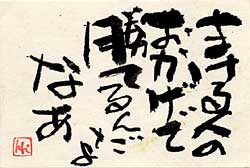 まける人の
おかげで
勝てるんだよ
なあ